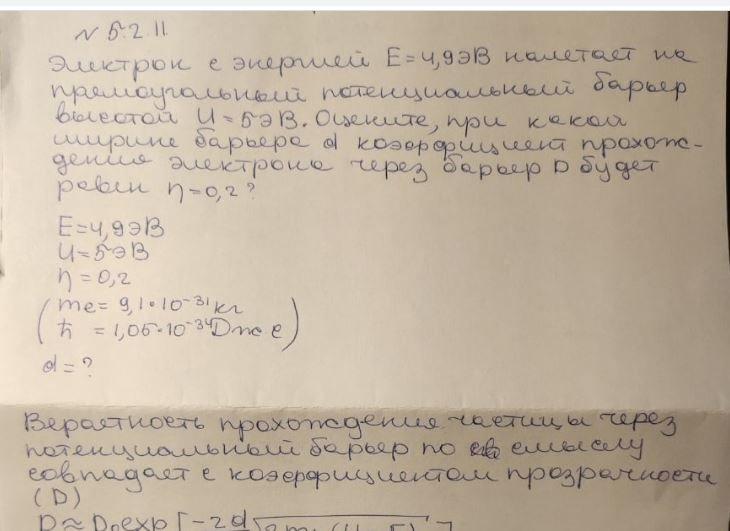 N 5.2.11
Электрон с энергией E=4,9эВ налетает на
прямоугольный потенциальный барьер
высотой U=5эВ. Оцените, при какой
ширине барьера d коэффициент прохож-
дения электрона через барьер D будет
равен η=0,2?
E=4,9эВ
U=5эВ
η=0,2
(me=9,1•10⁻³¹кг
ħ =1,05•10⁻³⁴Дж с)
d=?
Вероятность прохождения частицы через
потенциальный барьер по смыслу
совпадает с коэффициентом прозрачности
(D)
D≈D₀exp[-2d√